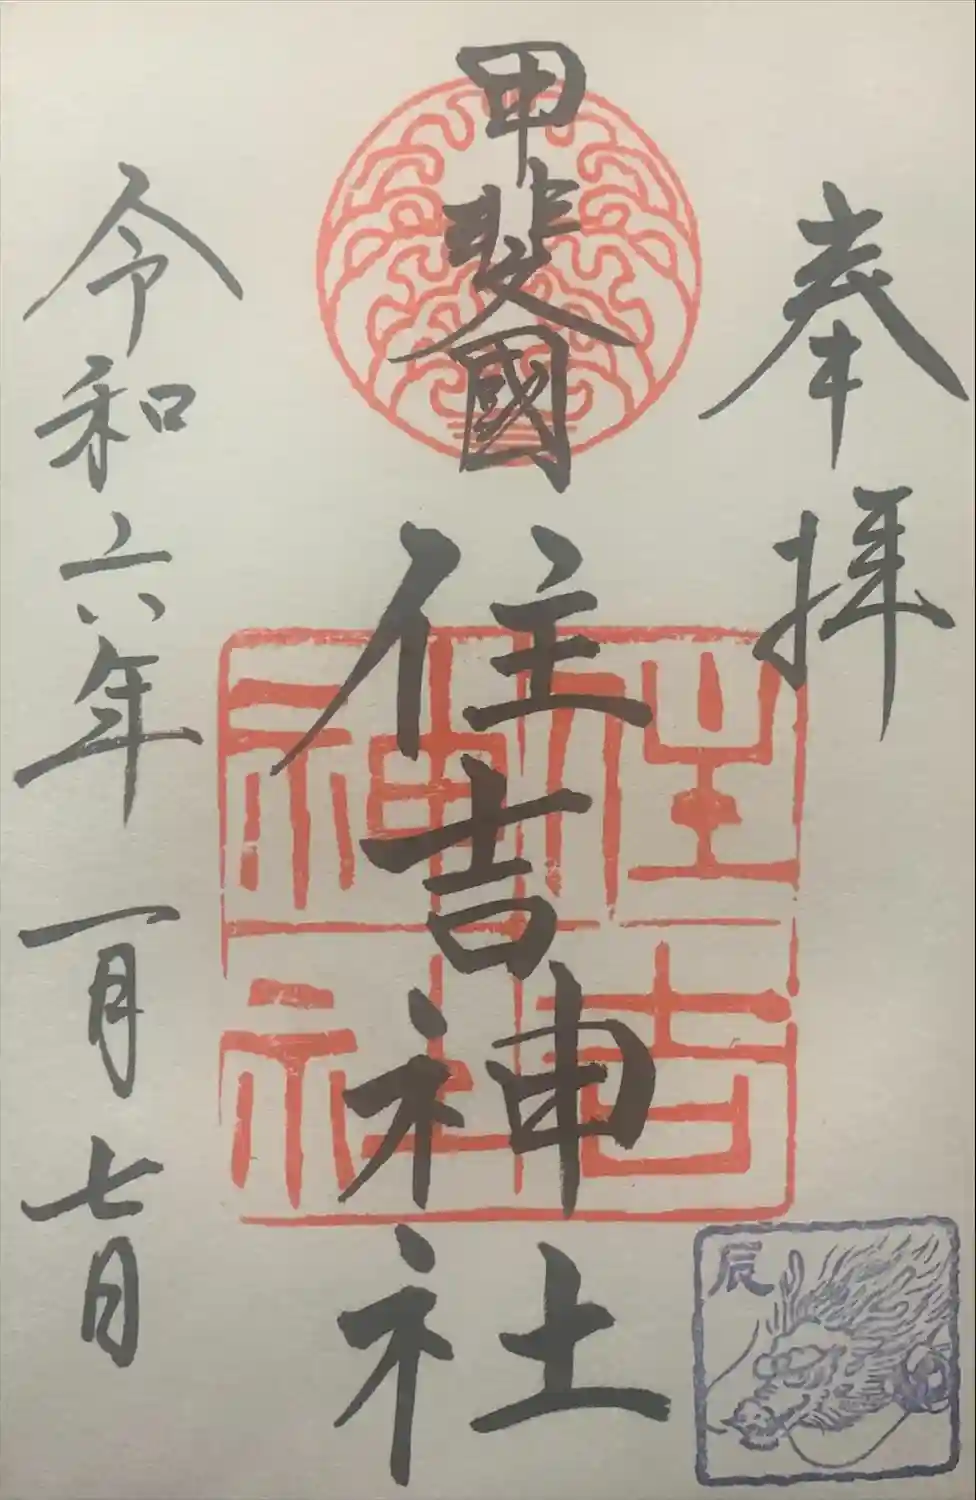 奉拝
甲斐國
住吉神社
住吉神社
令和六年一月七日
辰